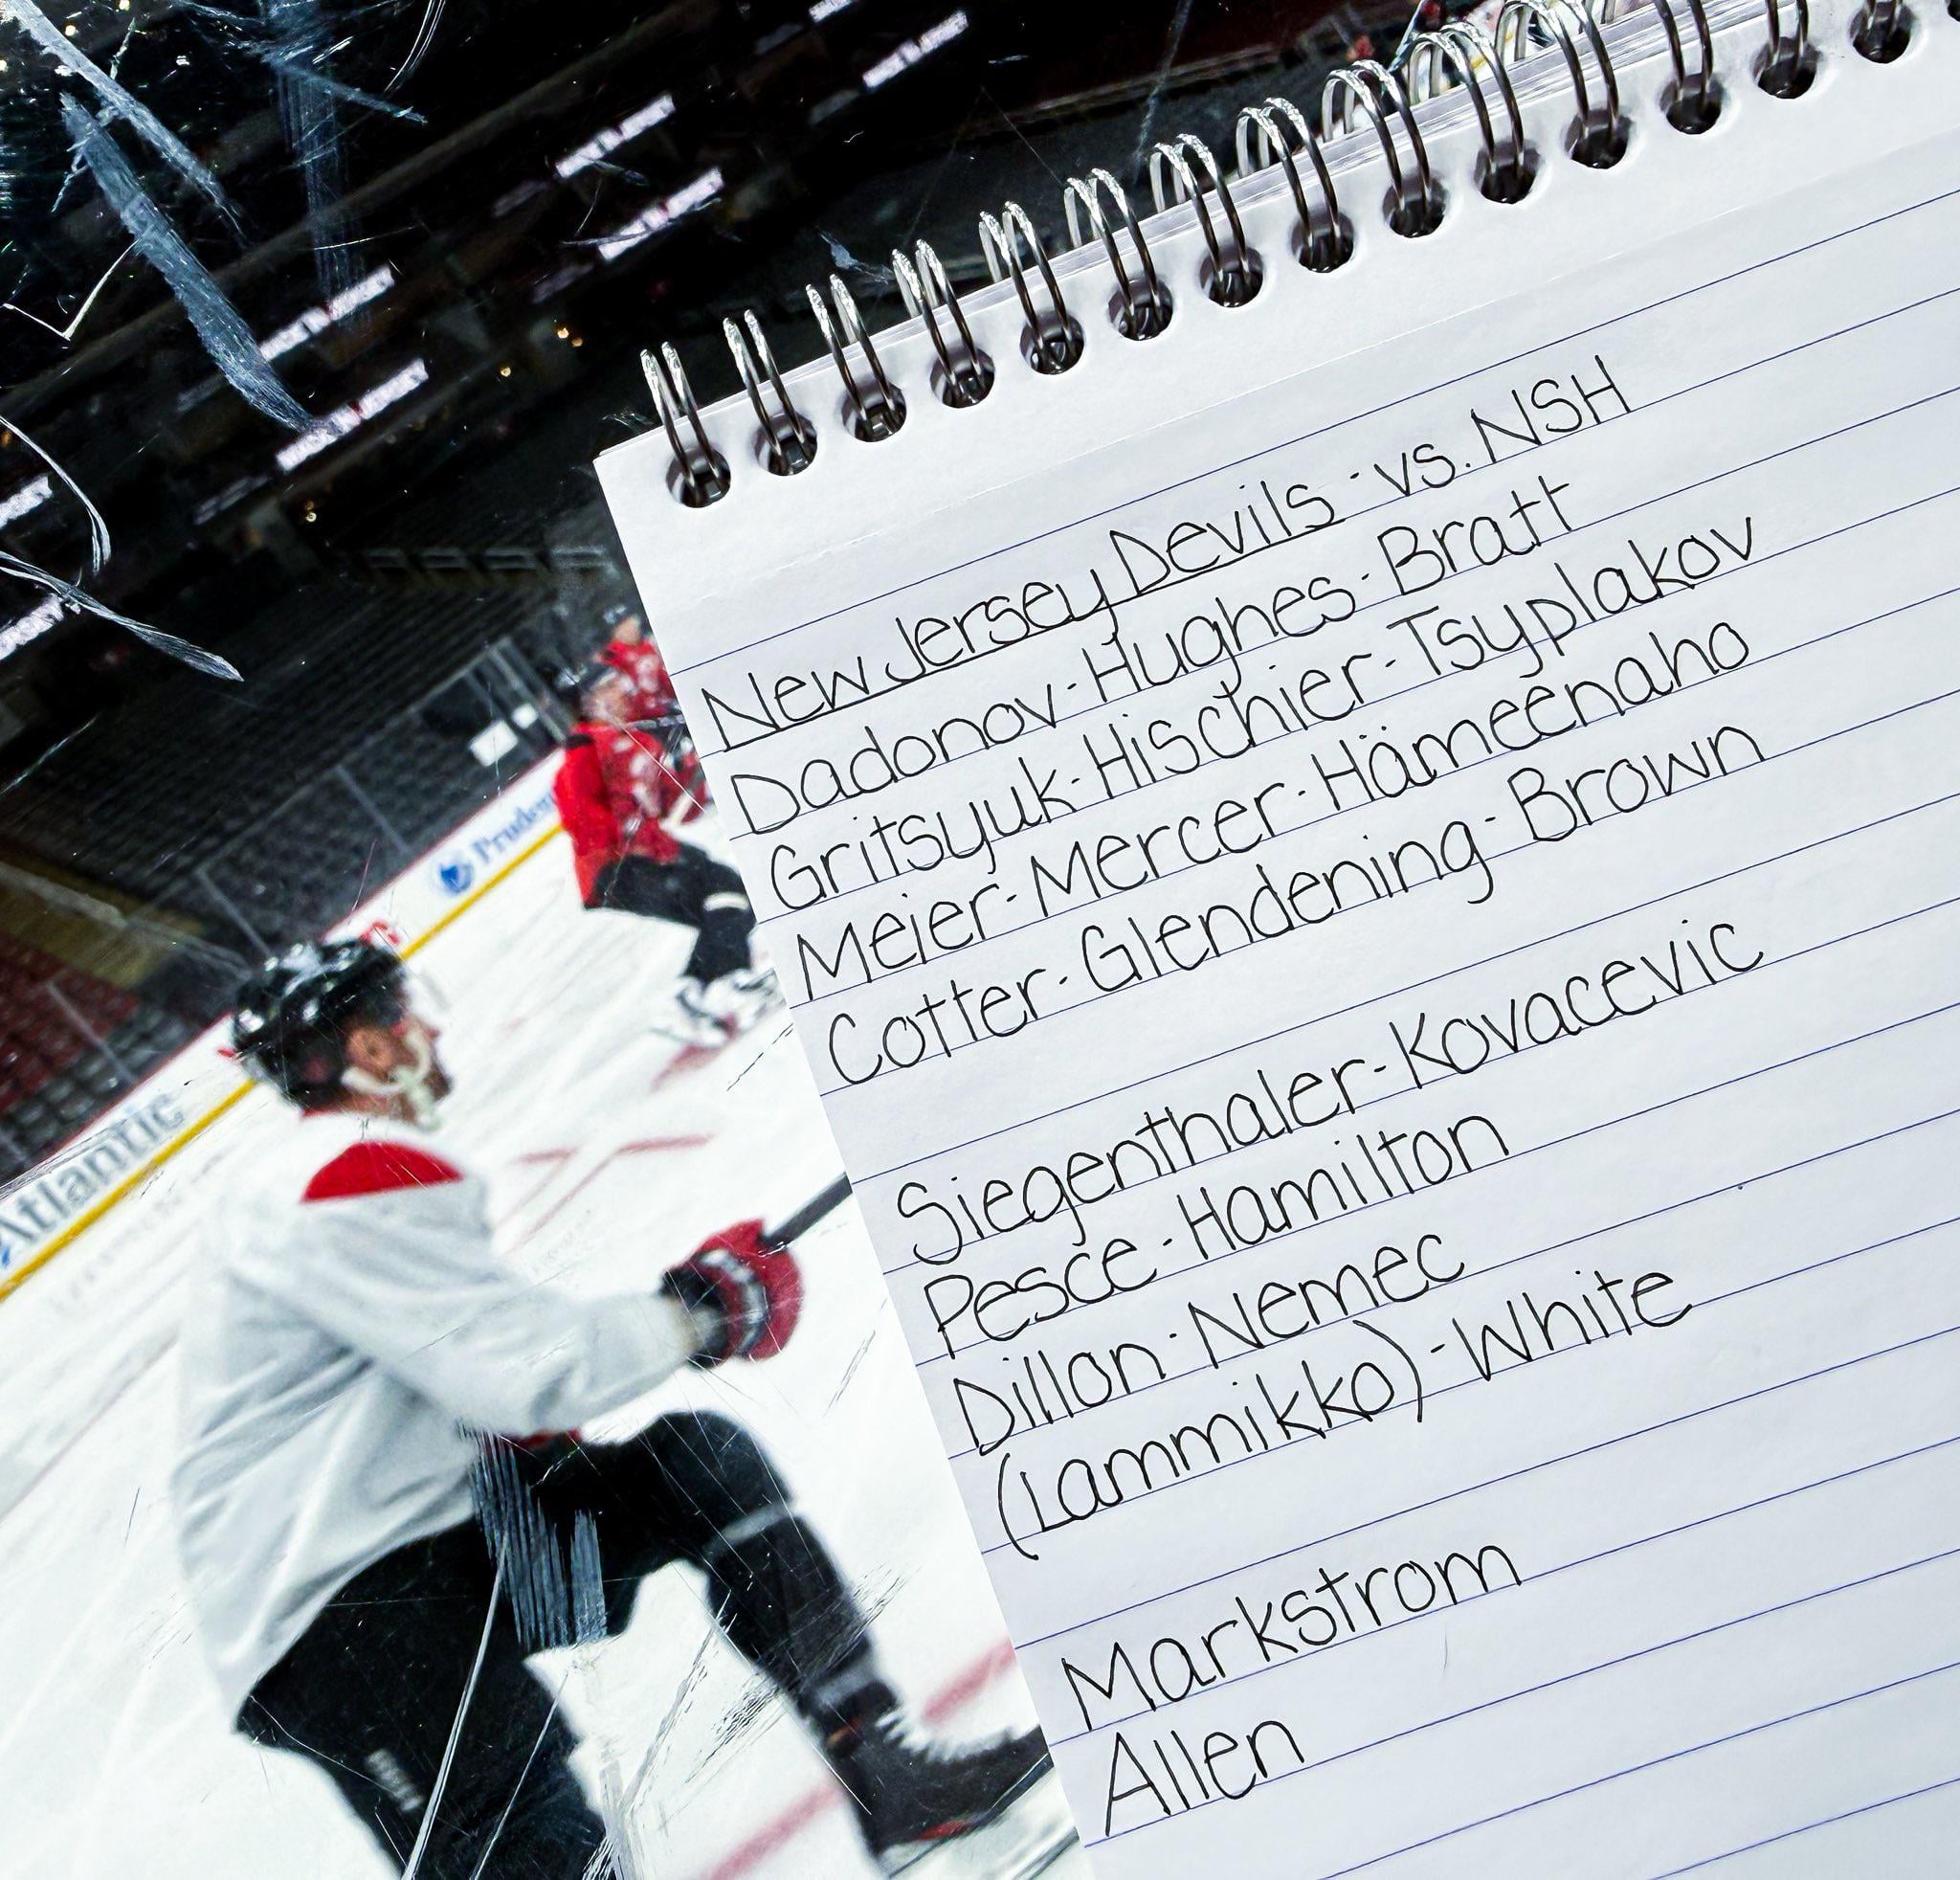 New Jersey Devils - vs. NSH
Dadonov - Hughes - Bratt
Gritsyuk - Hischier - Tsyplakov
Meier - Mercer - Hämeenaho
Cotter - Glendening - Brown
Siegenthaler - Kovacevic
Pesce - Hamilton
Dillon - Nemec
(Lammikko) - White
Markstrom
Allen
Atlantic